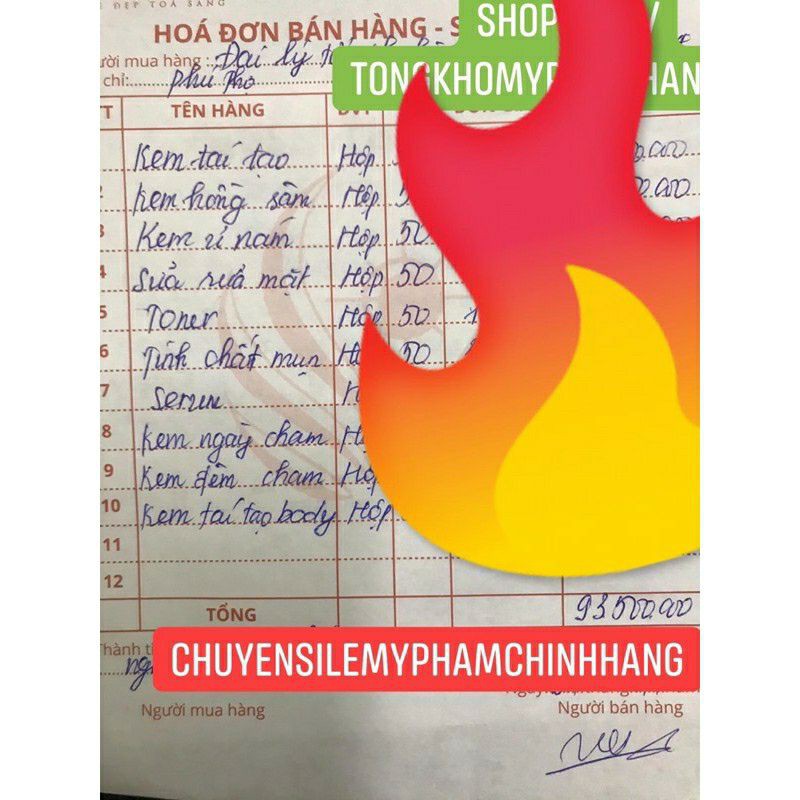 ĐẸP TOẢ SÁNG
HOÁ ĐƠN BÁN HÀNG - S
SHOP
ười mua hàng : Đại lý
TONGKHOMYP HAN
chỉ: Phú Thọ
T TÊN HÀNG ĐVT
Kem tái tạo Hộp 0.000
kem hồng sâm Hộp 5 0.000
3 Kem rí nám Hộp 50
4 sửa rửa mặt Hộp 50
5 Toner Hộp 50 1
6 Tinh chất mụn 50
7 serum
8 kem ngày cham Hộ
9 kem đêm cham Hộp
10 kem tái tạo body Hộp
11
12
TỔNG 93500.000
Thành ti
CHUYENSILEMYPHAMCHINHHANG
Người mua hàng Người bán hàng